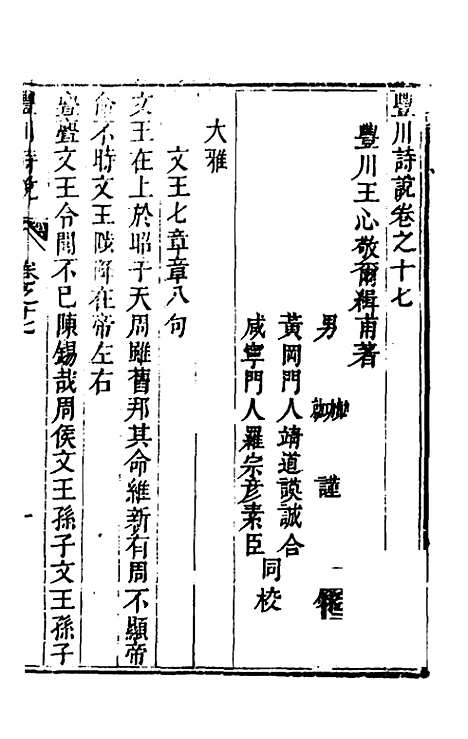 豐川詩說卷之十七
豐川王心敬爾緝甫著
男 謹
黃岡門人靖道謨誠合
咸寧門人羅宗彥素臣
同校
大雅
文王七章章八句
文王在上於昭于天周雖舊邦其命維新有周不顯帝
命不時文王陟降在帝左右
亹亹文王令聞不已陳錫哉周侯文王孫子文王孫子
豐川詩說
卷之十七
一